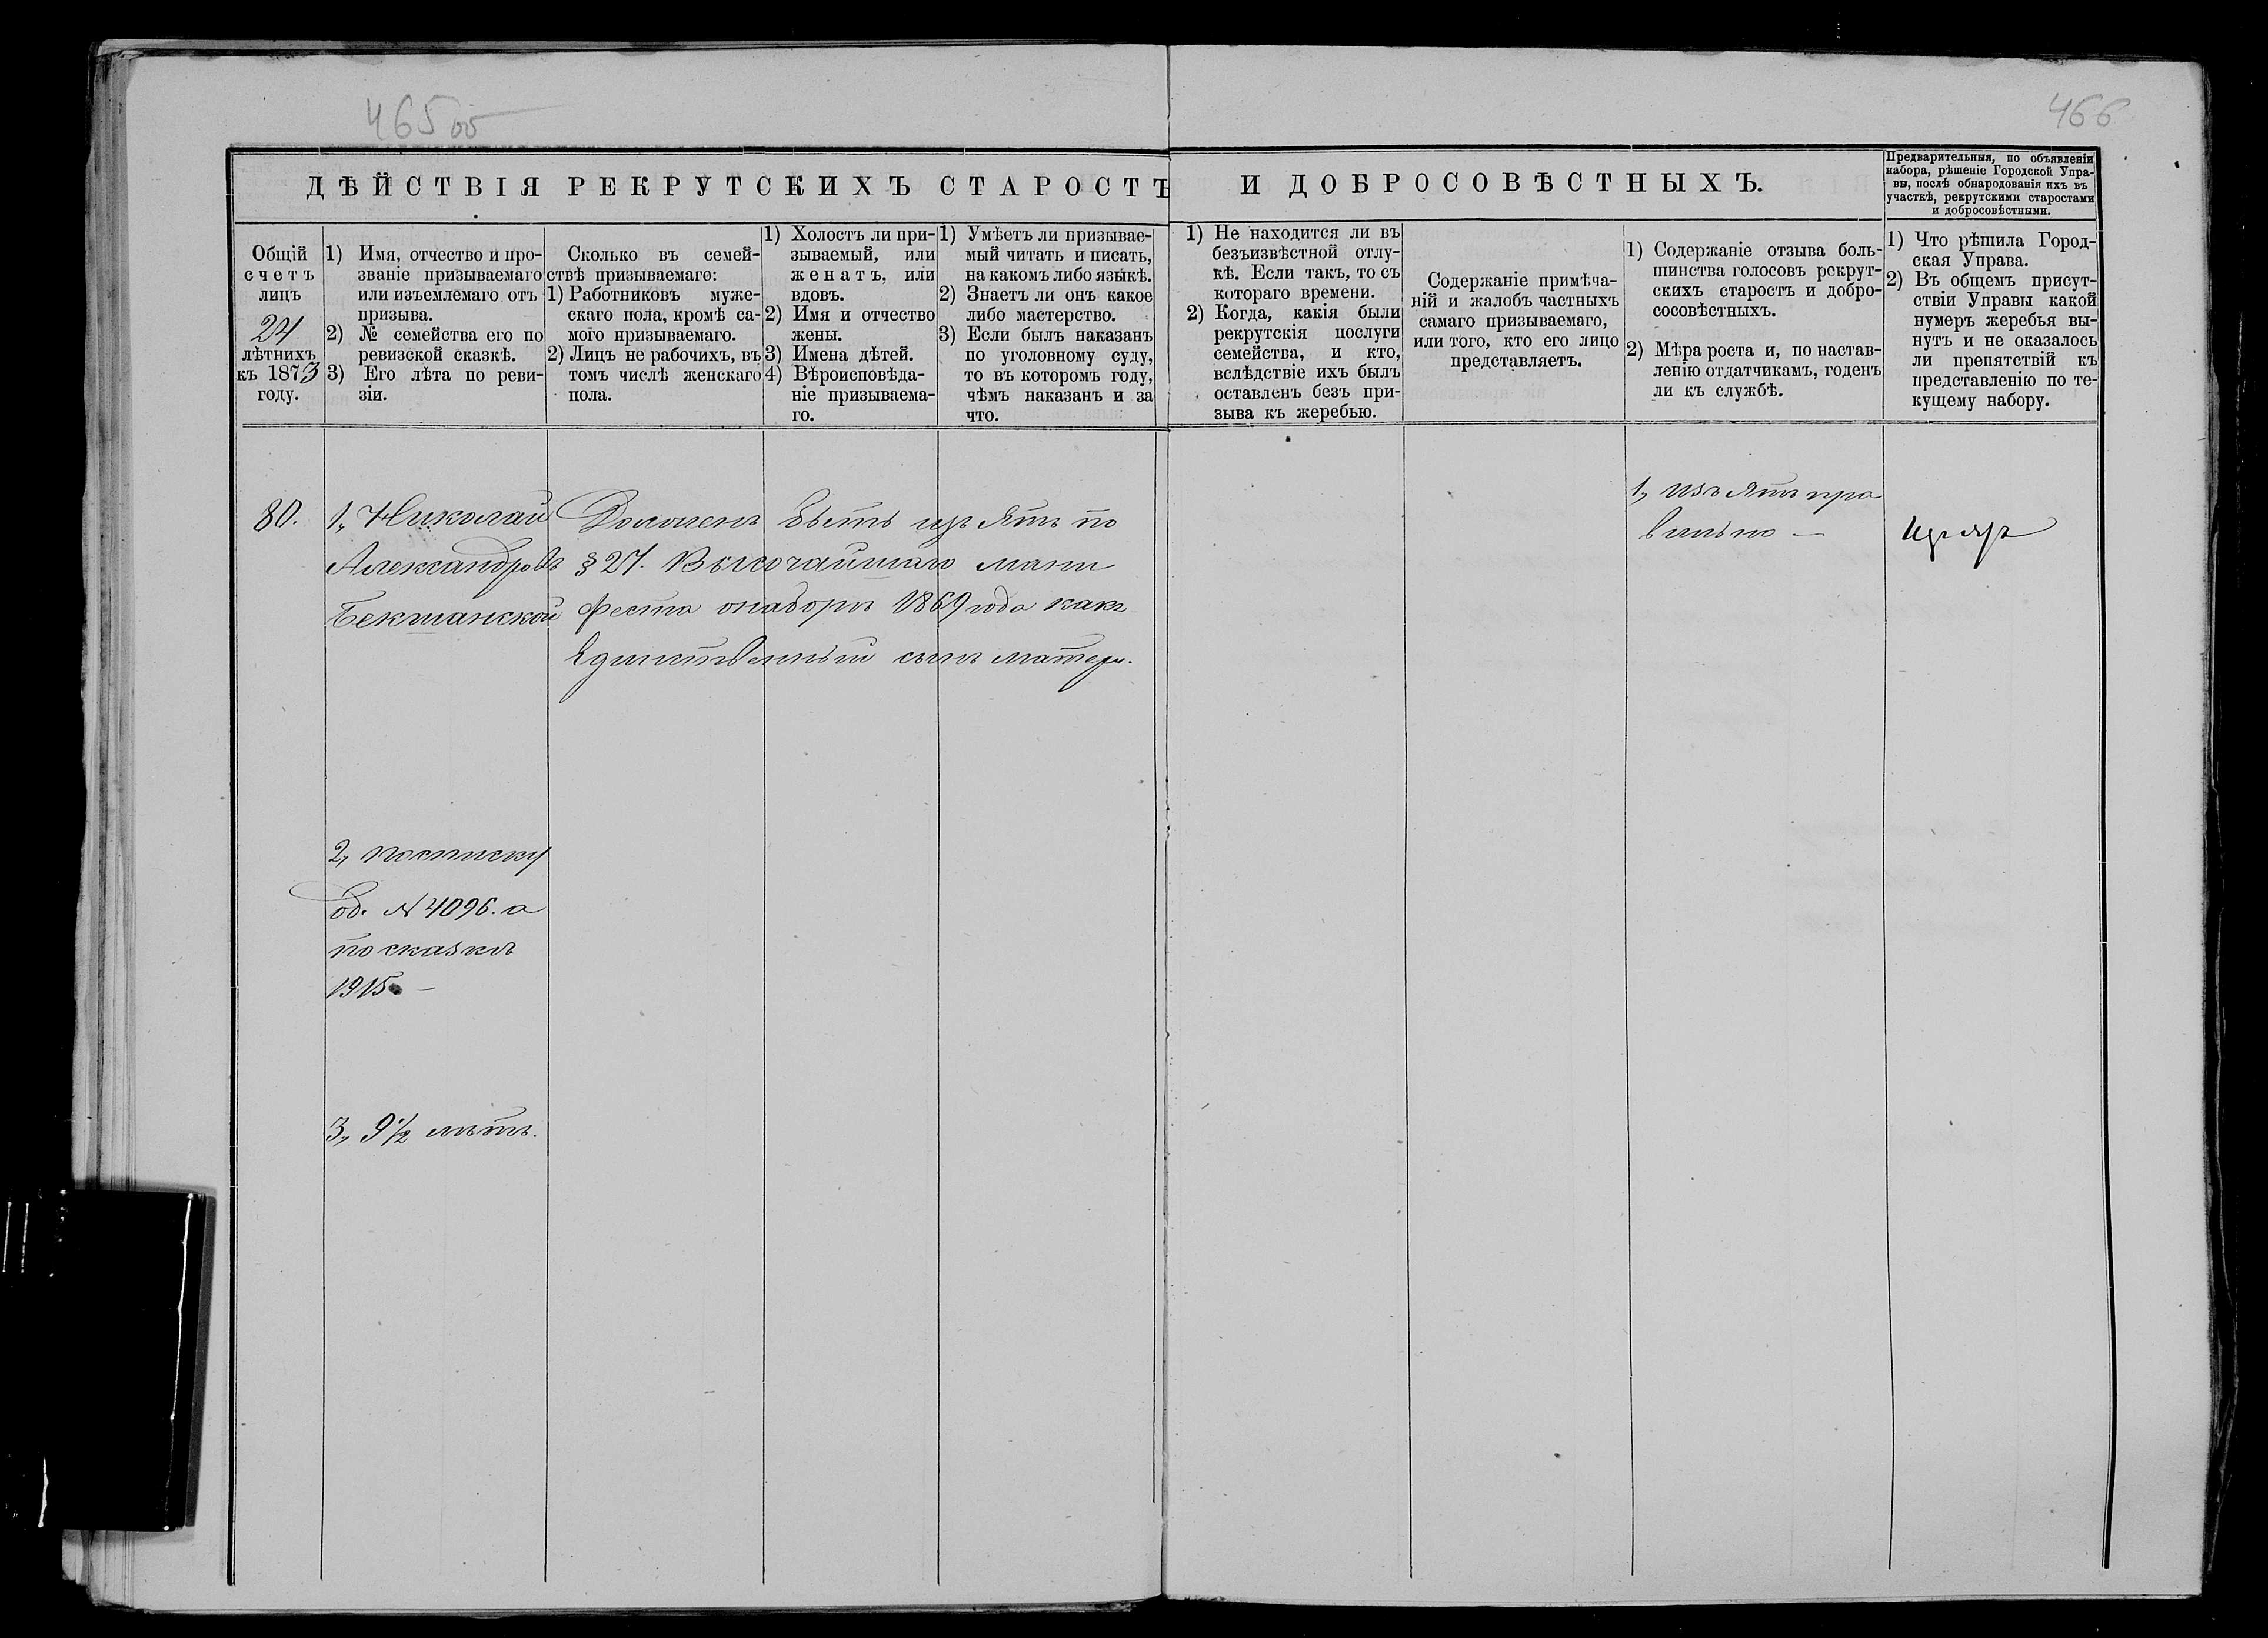 465 об
466
ДѢЙСТВІЯ РЕКРУТСКИХЪ СТАРОСТЪ И ДОБРОСОВѢСТНЫХЪ.
Предварительныя, по объявленіи
набора, рѣшеніе Городской Упра-
вы, послѣ обнародованія ихъ въ
участкѣ, рекрутскими старостами
и добросовѣстными.
Общій
счетъ
лицъ
24
лѣтнихъ
къ 1873
году.
1) Имя, отчество и про-
званіе призываемаго
или изъемлемаго отъ
призыва.
2) № семейства его по
ревизской сказкѣ.
3) Его лѣта по реви-
зіи.
Сколько въ семей-
ствѣ призываемаго:
1) Работниковъ муже-
скаго пола, кромѣ са-
мого призываемаго.
2) Лицъ не рабочихъ, въ
томъ числѣ женскаго
пола.
1) Холостъ ли при-
зываемый, или
женатъ, или
вдовъ.
2) Имя и отчество
жены.
3) Имена дѣтей.
4) Вѣроисповѣда-
ніе призываема-
го.
1) Умѣетъ ли призывае-
мый читать и писать,
на какомъ либо языкѣ.
2) Знаетъ ли онъ какое
либо мастерство.
3) Если былъ наказанъ
по уголовному суду,
то въ которомъ году,
чѣмъ наказанъ и за
что.
1) Не находится ли въ
безъизвѣстной отлу-
кѣ. Если такъ, то съ
котораго времени.
2) Когда, какія были
рекрутскія послуги
семейства, и кто,
вслѣдствіе ихъ былъ
оставленъ безъ при-
зыва къ жеребью.
Содержаніе примѣча-
ній и жалобъ частныхъ
самаго призываемаго,
или того, кто его лицо
представляетъ.
1) Содержаніе отзыва боль-
шинства голосовъ рекрут-
скихъ старостъ и добро-
сосовѣстныхъ.
2) Мѣра роста и, по настав-
ленію отдатчикамъ, годенъ
ли къ службѣ.
1) Что рѣшила Город-
ская Управа.
2) Въ общемъ присут-
ствіи Управы какой
нумеръ жеребья вы-
нутъ и не оказалось
ли препятствій къ
представленію по те-
кущему набору.
80.
1, Николай
Александровъ
Бекшанской
Долженъ быть изъятъ по
§ 27. Высочайшаго мани
феста о наборѣ 1869 года какъ
Единственный сынъ матери.
2, по списку
об. N 4096. а
по сказкѣ
1915. —
3, 9½ лѣтъ.
1, изъятъ пра
вильно —